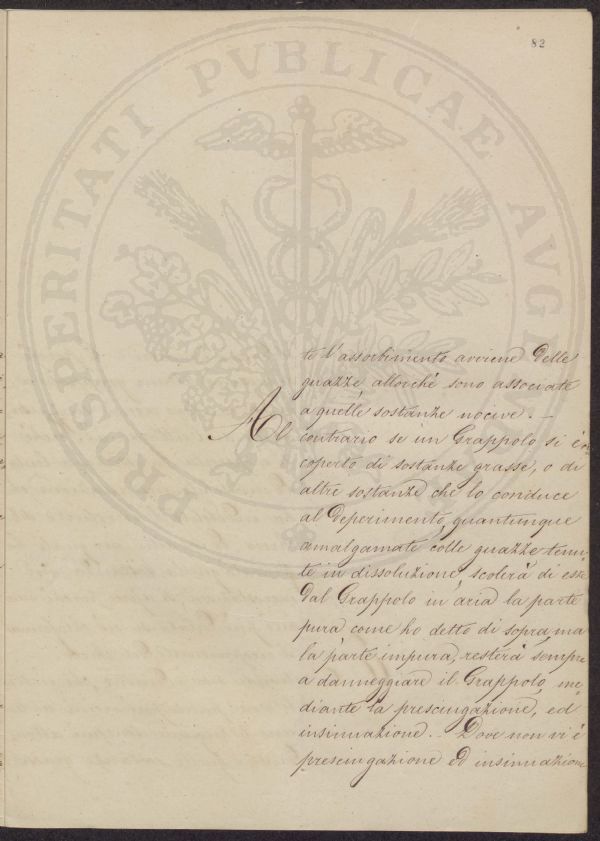 82
PROSPERITATI PVBLICAE AVGE
te l'assorbimento avviene delle
guazze allorchè sono associate
a quelle sostanze nocive. –
Al contrario se un Grappolo si è ri
coperto di sostanze grasse, o di
altre sostanze che lo conduce
al deperimento, quantunque
amalgamate colle guazze tenu-
te in dissoluzione, scolerà di esse
dal Grappolo in aria la parte
pura come ho detto di sopra, ma
la parte impura, resterà sempre
a danneggiare il Grappolo, me
diante la prescingazione, ed
insinuazione. – Dove non vi è
prescingazione ed insinuazione